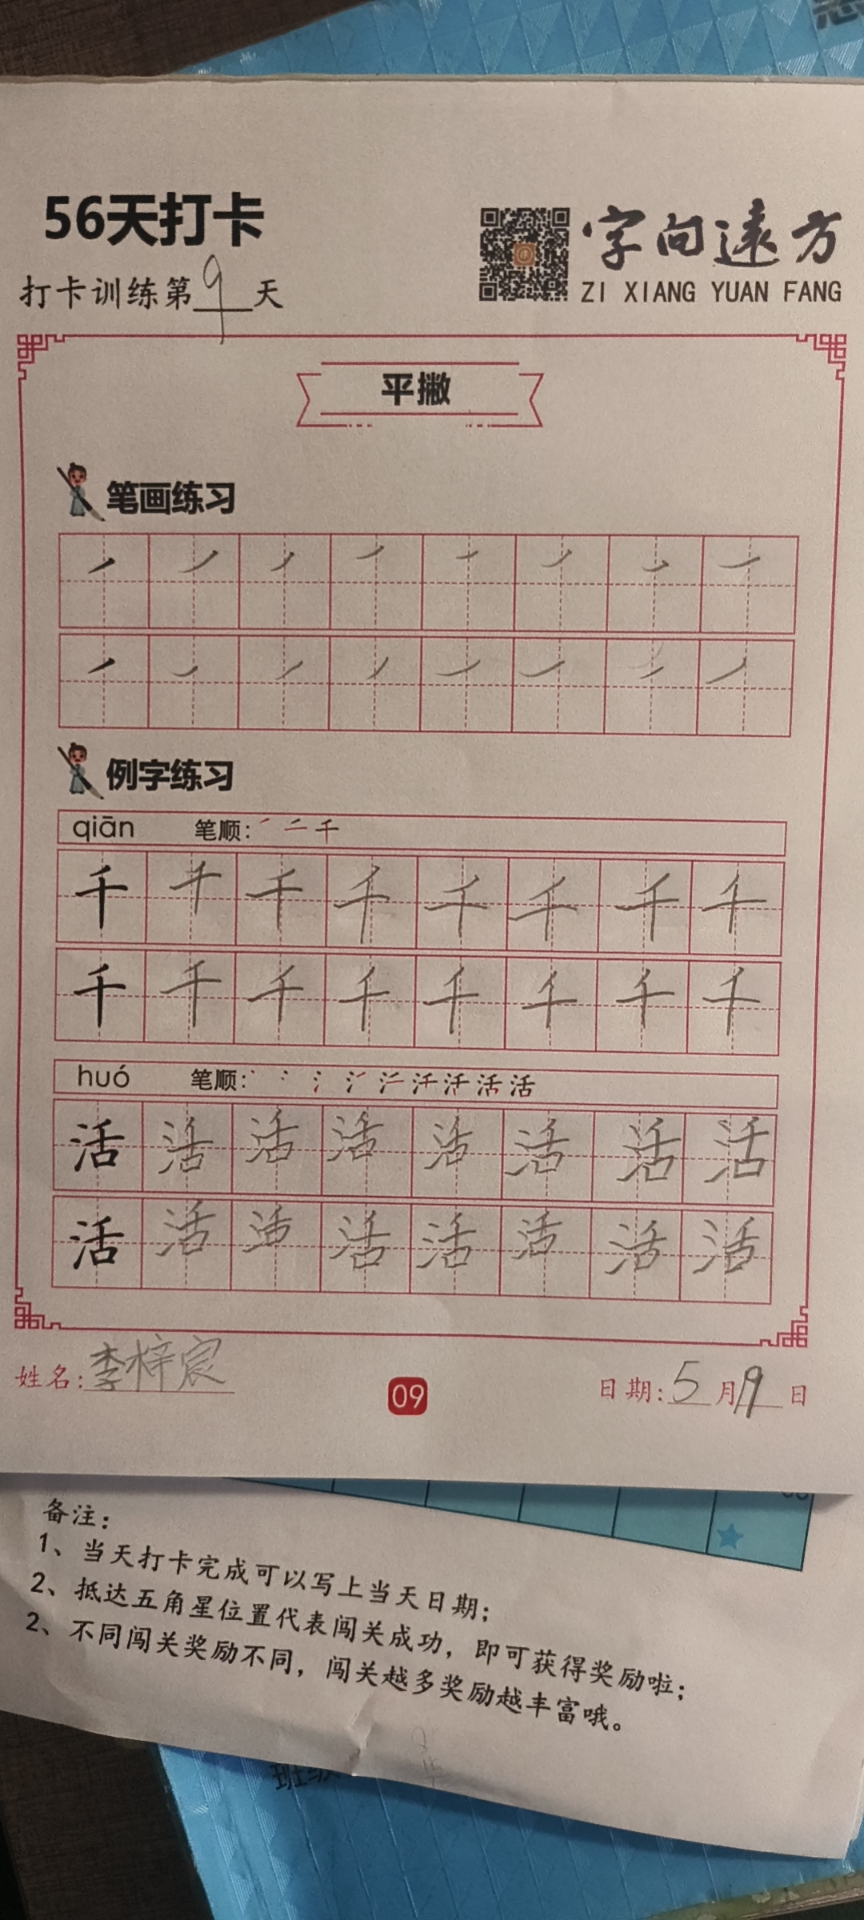 56天打卡
字向远方
打卡训练第9天
ZI XIANG YUAN FANG
平撇
笔画练习
例字练习
qiān 笔顺:
千 千 千 千 千 千 千 千
千 千 千 千 千 千 千 千
huó 笔顺:
活 活 活 活 活 活 活 活
活 活 活 活 活 活 活 活
姓名:李梓宸
09
日期:5月9日
备注:
1、当天打卡完成可以写上当天日期;
2、抵达五角星位置代表闯关成功,即可获得奖励啦;
2、不同闯关奖励不同,闯关越多奖励越丰富哦。